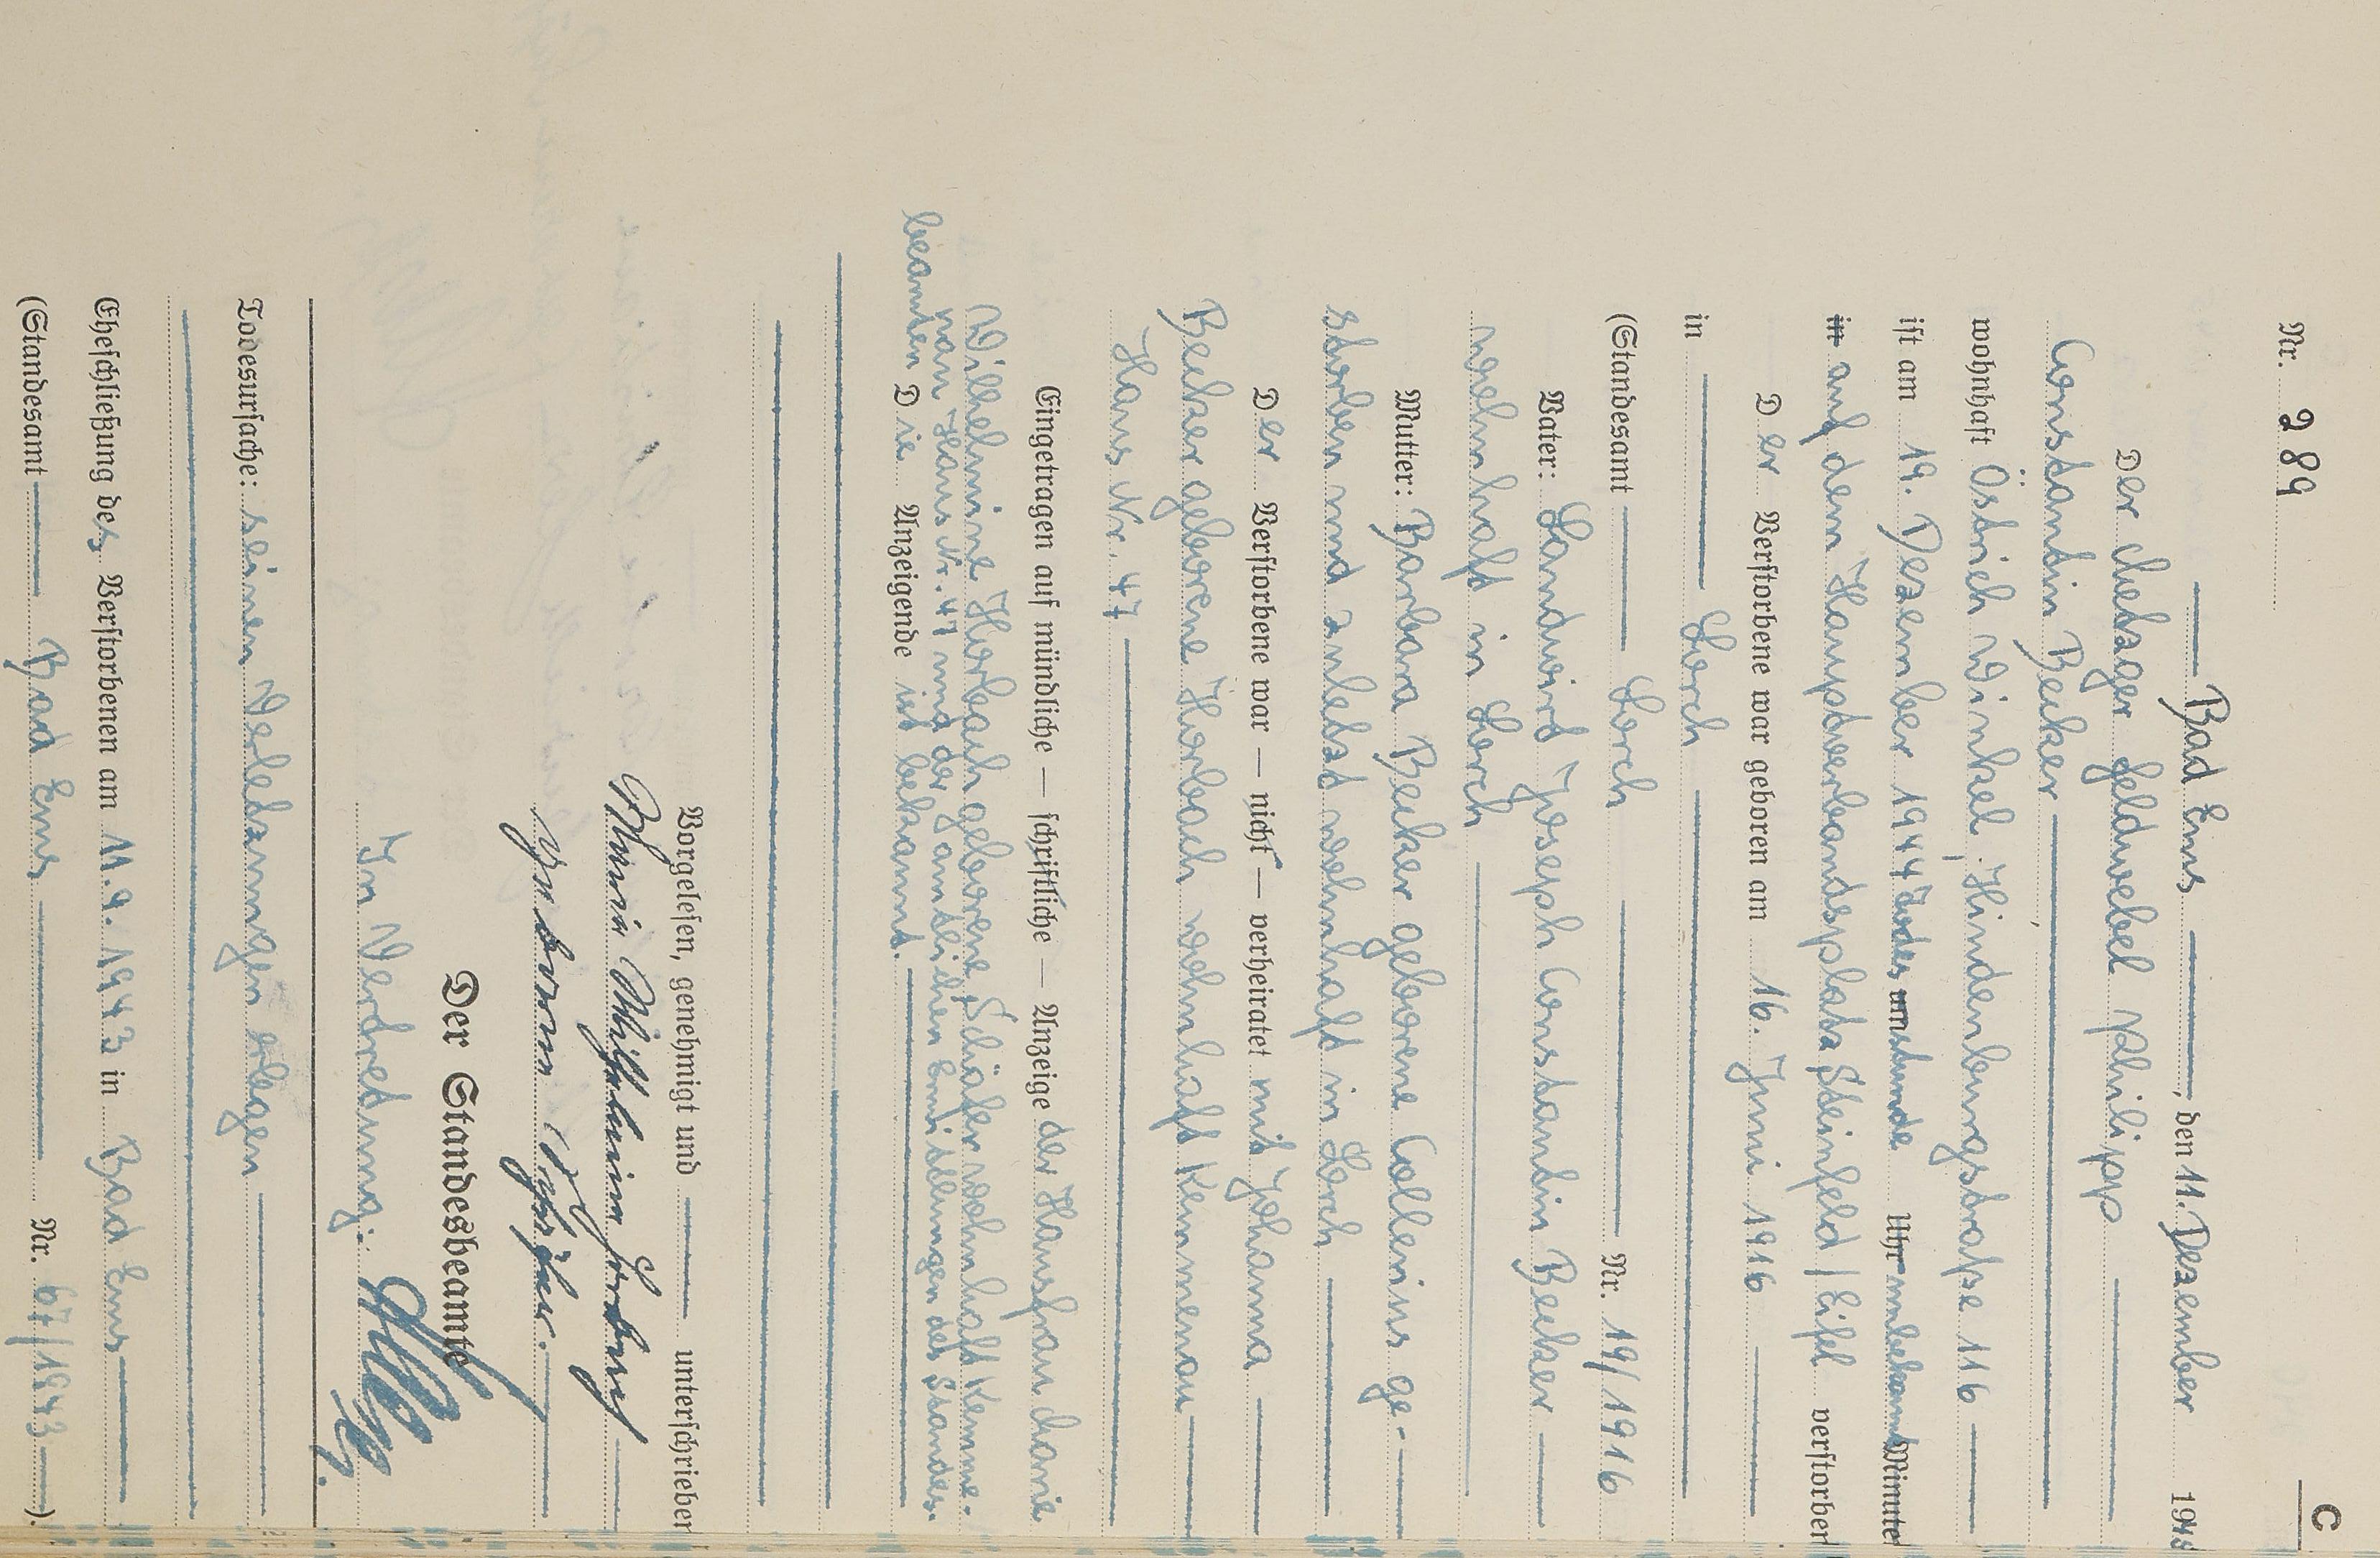 C
Nr. 289
Bad Ems, den 11. Dezember 1948
Der Metzger Feldwebel Philipp
Constantin Becker
wohnhaft Östrich Winkel, Hindenburgstraße 116
ist am 19. Dezember 1944 Todes umstunde Uhr unbekannt Minuten
in auf dem Hauptverbandsplatz Steinfeld/Eifel verstorben
Der Verstorbene war geboren am 16. Juni 1916
in Lorch
(Standesamt Lorch Nr. 19/1916
Vater: Landwirt Joseph Constantin Becker
wohnhaft in Lorch
Mutter: Barbara Becker geborene Collenius ge-
storben und zuletzt wohnhaft in Lorch
Der Verstorbene war — nicht — verheiratet mit Johanna
Becker geborene Horbach wohnhaft Kemmenau
Haus Nr. 47
Eingetragen auf mündliche — schriftliche — Anzeige der Hausfrau Marie
Wilhelmine Horbach geborene Schäfer wohnhaft Kemme-
nau Haus Nr. 47 und der amtlichen Ermittlungen des Standes-
beamten Die Anzeigende ist bekannt.
Vorgelesen, genehmigt und unterschrieben
Marie Wilhelmine Horbach
geborene Schäfer.
Der Standesbeamte
In Vertretung:
Todesursache: seinen Verletzungen erlegen
Eheschließung des Verstorbenen am 11.9.1943 in Bad Ems
(Standesamt Bad Ems Nr. 67/1943).